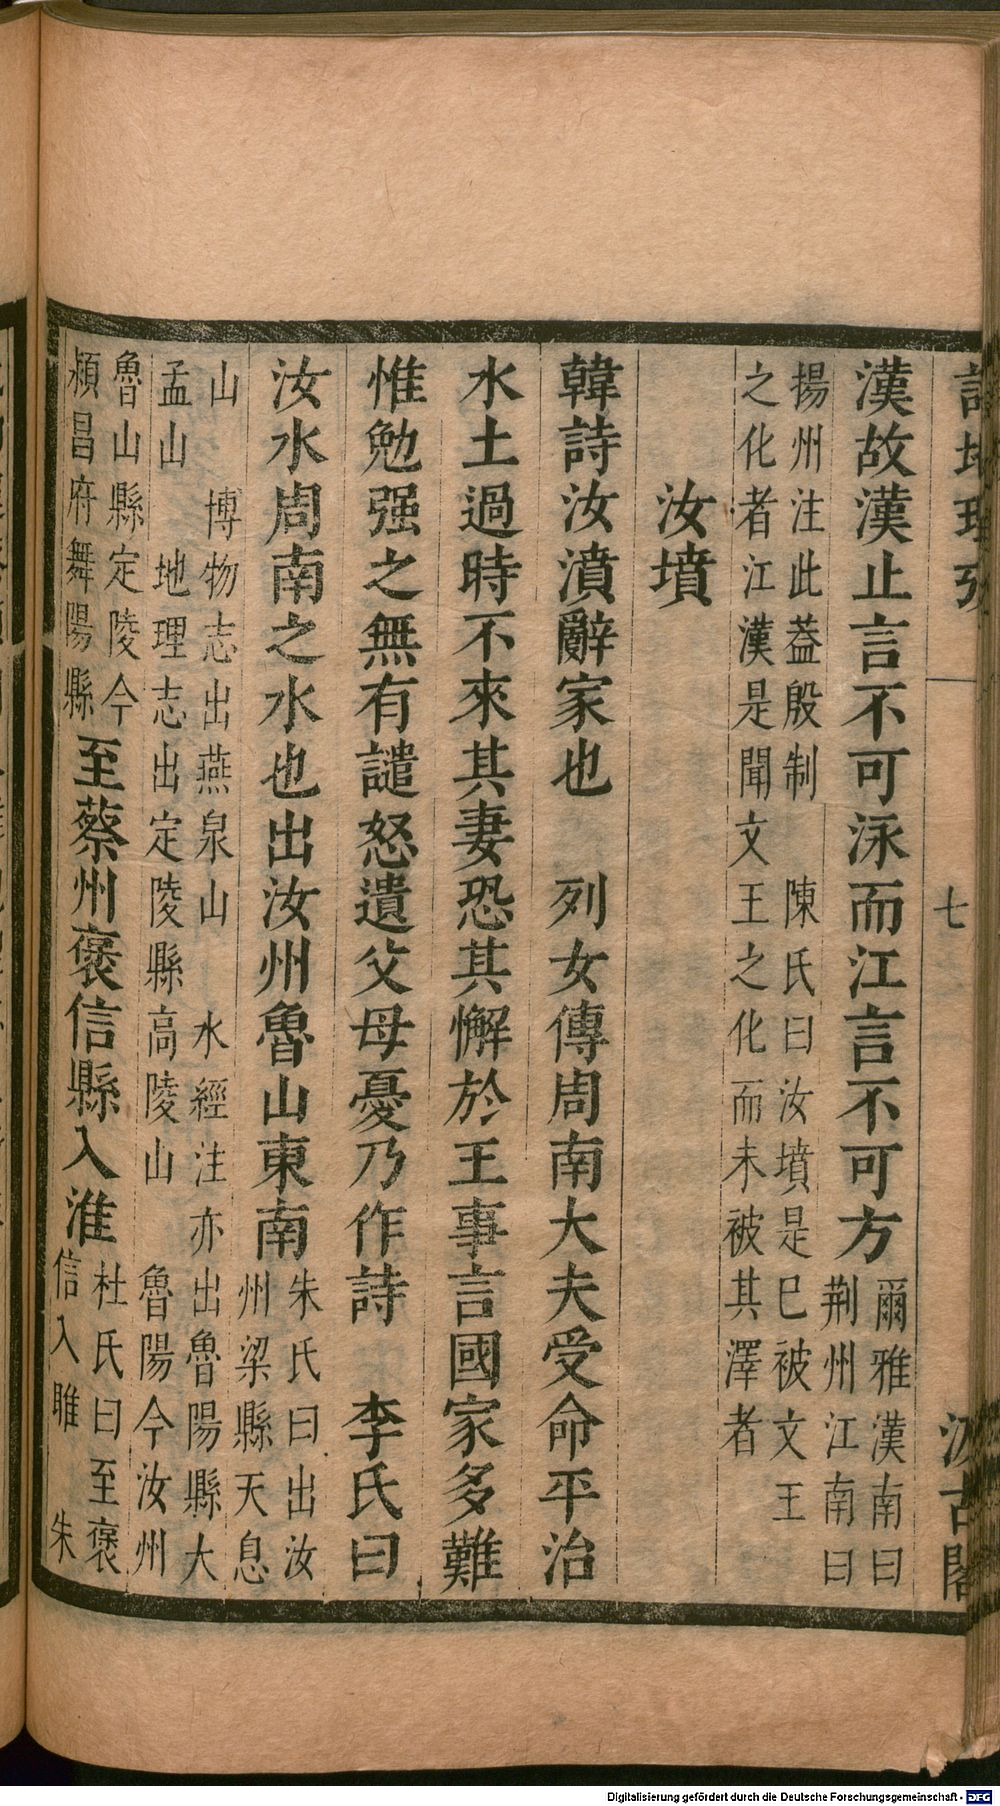 詩地理攷 七 汲古閣
漢故漢止言不可泳而江言不可方爾雅漢南曰荆州江南曰
揚州注此葢殷制 陳氏曰汝墳是已被文王之化者江漢是聞文王之化而未被其澤者
汝墳
韓詩汝濆辭家也 列女傳周南大夫受命平治
水土過時不來其妻恐其懈於王事言國家多難
惟勉强之無有譴怒遺父母憂乃作詩 李氏曰
汝水周南之水也出汝州魯山東南朱氏曰出汝州梁縣天息
山 博物志出燕泉山 水經注亦出魯陽縣大孟山 地理志出定陵縣高陵山 魯陽今汝州
魯山縣定陵今潁昌府舞陽縣至蔡州褒信縣入淮杜氏曰至褒信入睢 朱
Digitalisierung gefördert durch die Deutsche Forschungsgemeinschaft - DFG